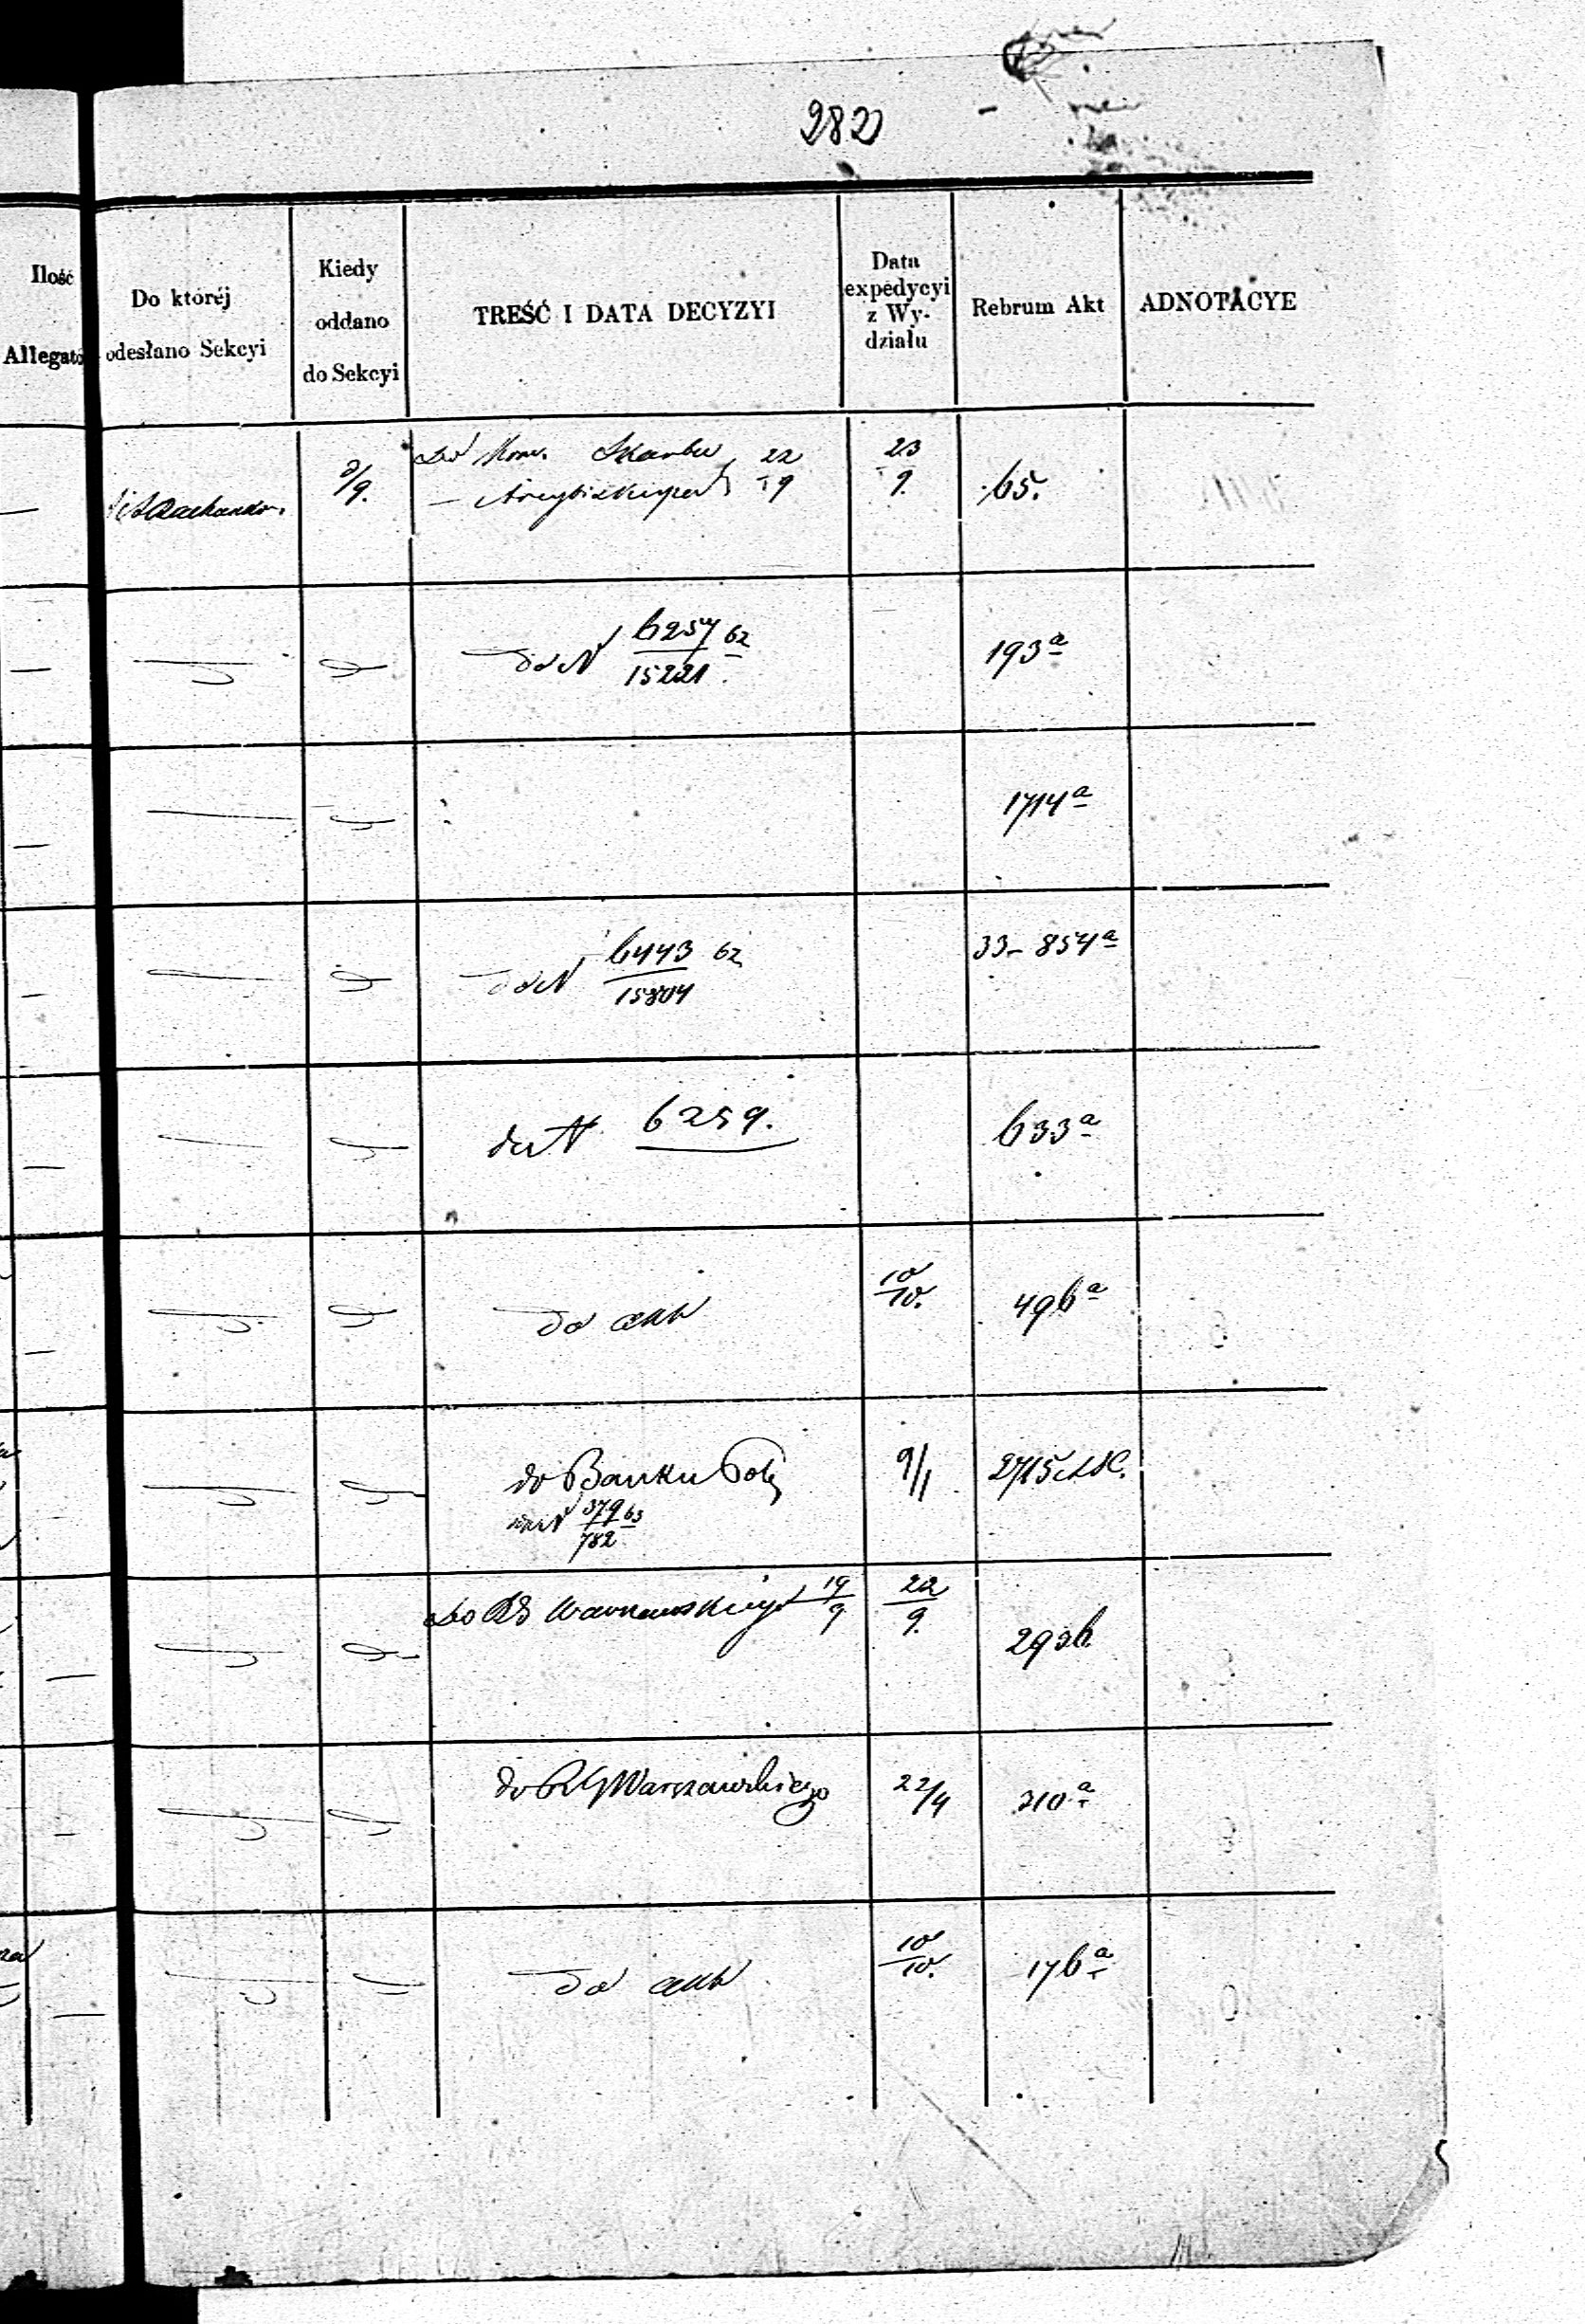 282
Ilość
Allegató
Do któréj
odesłano Sekcyi
Kiedy
oddano
do Sekcyi
TREŚĆ I DATA DECYZYI
Data
expedycyi
z Wy-
działu
Rebrum Akt
ADNOTACYE
9/9.
Do Kom. Skarbu 22
— Arcybiskupa 9
23
9.
65.
do N 6257 62
15221.
193 a
1714 a
do N 6443 62
15804
33 – 854 a
do N 6259.
633 a
do akt
10
10.
496 a
do Banku Pol
379 63
782
9/1
do RG Warszawskiego 19
9
22
9.
293b
do RG Warszawskiego
22/4
210 a
do akt
10
10.
176 a